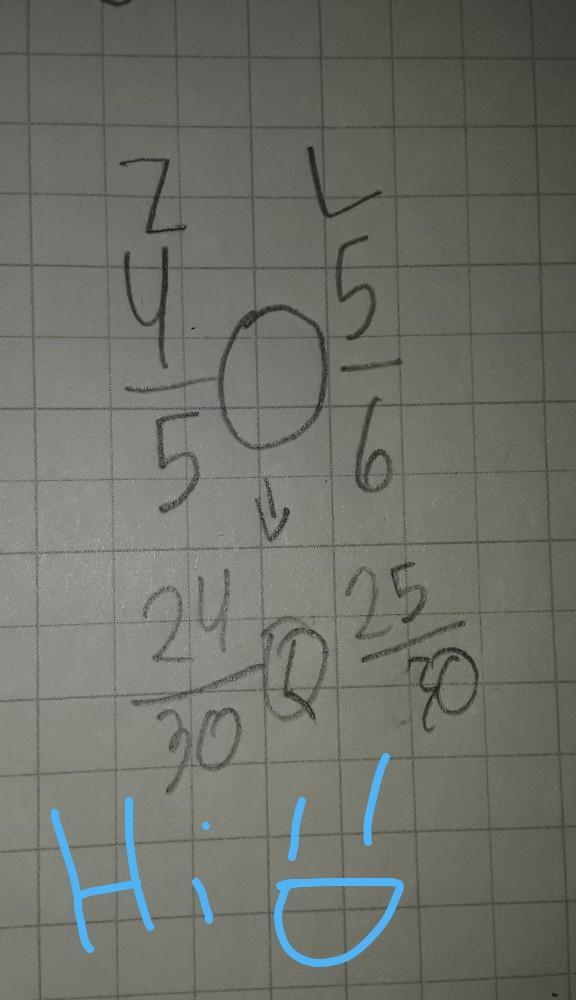 Z L
4/5 ○ 5/6
↓
24/30 25/30
Hi